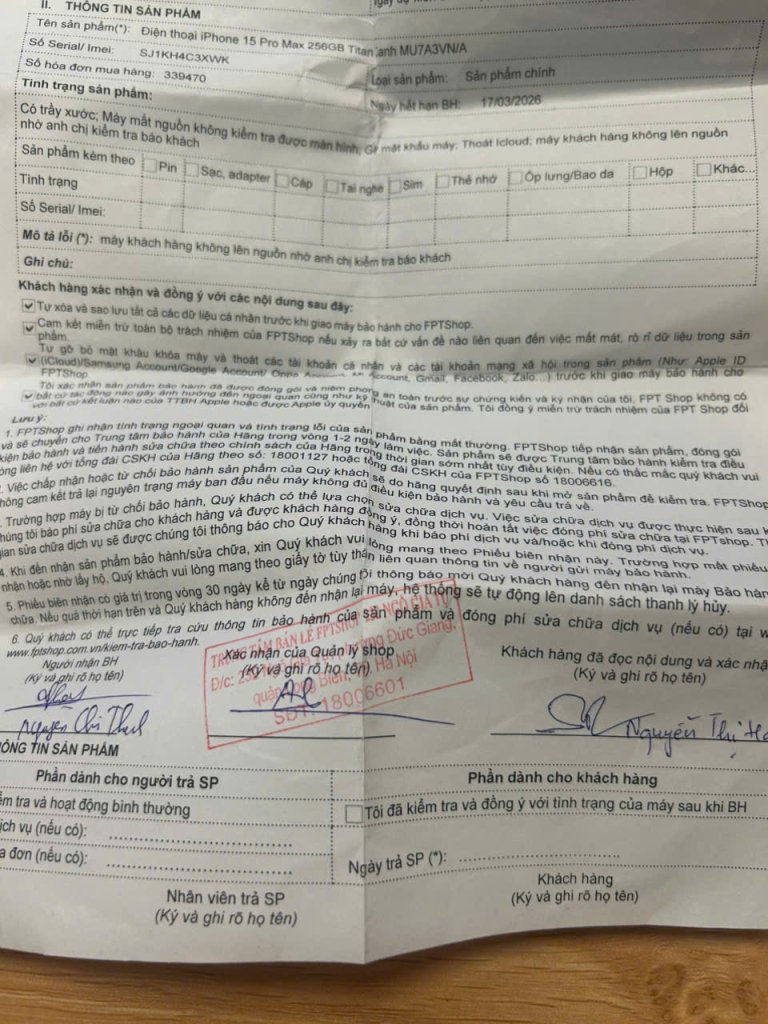 II. THÔNG TIN SẢN PHẨM
Tên sản phẩm(*): Điện thoại iPhone 15 Pro Max 256GB Titan xanh MU7A3VN/A
Số Serial/ Imei: SJ1KH4C3XWK
Số hóa đơn mua hàng: 339470
Loại sản phẩm: Sản phẩm chính
Tình trạng sản phẩm:
Ngày hết hạn BH: 17/03/2026
Có trầy xước; Máy mất nguồn không kiểm tra được màn hình; Gỡ mật khẩu máy; Thoát Icloud; máy khách hàng không lên nguồn
nhờ anh chị kiểm tra báo khách
Sản phẩm kèm theo Pin Sạc, adapter Cáp Tai nghe Sim Thẻ nhớ Ốp lưng/Bao da Hộp Khác...
Tình trạng
Số Serial/ Imei:
Mô tả lỗi (*): máy khách hàng không lên nguồn nhờ anh chị kiểm tra báo khách
Ghi chú:
Khách hàng xác nhận và đồng ý với các nội dung sau đây:
Tự xóa và sao lưu tất cả các dữ liệu cá nhân trước khi giao máy bảo hành cho FPTShop.
Cam kết miễn trừ toàn bộ trách nhiệm của FPTShop nếu xảy ra bất cứ vấn đề nào liên quan đến việc mất mát, rò rỉ dữ liệu trong sản
phẩm.
Tự gỡ bỏ mật khẩu khóa máy và thoát các tài khoản cá nhân và các tài khoản mạng xã hội trong sản phẩm (Như: Apple ID
(iCloud)/Samsung Account/Google Account/ Oppo Account, Mi Account, Gmail, Facebook, Zalo...) trước khi giao máy bảo hành cho
FPTShop.
Tôi xác nhận sản phẩm bảo hành đã được đóng gói và niêm phong an toàn trước sự chứng kiến và ký nhận của tôi, FPT Shop không có
bất cứ tác động nào gây ảnh hưởng đến ngoại quan cũng như kỹ thuật của sản phẩm. Tôi đồng ý miễn trừ trách nhiệm của FPT Shop đối
với bất cứ kết luận nào của TTBH Apple hoặc được Apple ủy quyền
Lưu ý:
1. FPTShop ghi nhận tình trạng ngoại quan và tình trạng lỗi của sản phẩm bằng mắt thường. FPTShop tiếp nhận sản phẩm, đóng gói
và sẽ chuyển cho Trung tâm bảo hành của Hãng trong vòng 1-2 ngày làm việc. Sản phẩm sẽ được Trung tâm bảo hành kiểm tra điều
kiện bảo hành và tiến hành sửa chữa theo chính sách của Hãng trong thời gian sớm nhất tùy điều kiện. Nếu có thắc mắc quý khách vui
òng liên hệ với tổng đài CSKH của Hãng theo số: 18001127 hoặc tổng đài CSKH của FPTShop số 18006616.
. Việc chấp nhận hoặc từ chối bảo hành sản phẩm của Quý khách sẽ do hãng quyết định sau khi mở sản phẩm để kiểm tra. FPTShop
hông cam kết trả lại nguyên trạng máy ban đầu nếu máy không đủ điều kiện bảo hành và yêu cầu trả về.
. Trường hợp máy bị từ chối bảo hành, Quý khách có thể lựa chọn sửa chữa dịch vụ. Việc sửa chữa dịch vụ được thực hiện sau k
húng tôi báo phí sửa chữa cho khách hàng và được khách hàng đồng ý, đồng thời hoàn tất việc đóng phí sửa chữa tại FPTshop. Th
gian sửa chữa dịch vụ sẽ được chúng tôi thông báo cho Quý khách hàng khi báo phí dịch vụ và/hoặc khi đóng phí dịch vụ.
4. Khi đến nhận sản phẩm bảo hành/sửa chữa, xin Quý khách vui lòng mang theo Phiếu biên nhận này. Trường hợp mất phiếu
nhận hoặc nhờ lấy hộ, Quý khách vui lòng mang theo giấy tờ tùy thân liên quan thông tin về người gửi máy bảo hành.
5. Phiếu biên nhận có giá trị trong vòng 30 ngày kể từ ngày chúng tôi thông báo mời Quý khách hàng đến nhận lại máy Bảo hàn
chữa. Nếu quá thời hạn trên và Quý khách hàng không đến nhận lại máy, hệ thống sẽ tự động lên danh sách thanh lý hủy.
6. Quý khách có thể trực tiếp tra cứu thông tin bảo hành của sản phẩm và đóng phí sửa chữa dịch vụ (nếu có) tại w
www.fptshop.com.vn/kiem-tra-bao-hanh.
Người nhận BH
(Ký và ghi rõ họ tên)
Xác nhận của Quản lý shop
(Ký và ghi rõ họ tên)
Khách hàng đã đọc nội dung và xác nhậ
(Ký và ghi rõ họ tên)
TRUNG TÂM BÁN LẺ FPTSHOP NGÔ GIA TỰ
Đ/c: phường Đức Giang,
quận Long Biên, Hà Nội
SĐT: 18006601
Nguyễn Chí Thanh
Nguyễn Thị
HÔNG TIN SẢN PHẨM
Phần dành cho người trả SP
Phần dành cho khách hàng
ểm tra và hoạt động bình thường
Tôi đã kiểm tra và đồng ý với tình trạng của máy sau khi BH
ịch vụ (nếu có):
a đơn (nếu có):
Ngày trả SP (*):
Nhân viên trả SP
(Ký và ghi rõ họ tên)
Khách hàng
(Ký và ghi rõ họ tên)